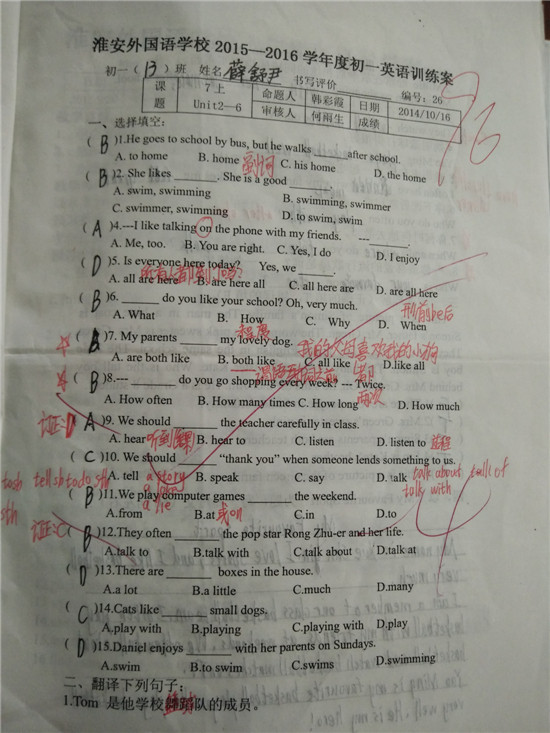 淮安外国语学校 2015—2016 学年度初一英语训练案
初一（13）班 姓名 薛舒尹 书写评价 编号：26
76
课题 7上 Unit2—6 命题人 韩彩霞 日期 2014/10/16
审核人 何雨生 成绩
一、选择填空：
( B )1.He goes to school by bus, but he walks ______after school.
A. to home B. home 副词 C. his home D. the home
( B )2. She likes ______. She is a good ______.
A. swim, swimming B. swimming, swimmer
C. swimmer, swimming D. to swim, swim
( A )4.---I like talking on the phone with my friends. ---______.
A. Me, too. B. You are right. C. Yes, I do D. I enjoy
( D )5. Is everyone here today? Yes, we ______.
A. all are here B. are here all C. all here are D. are all here
( B )6. ______ do you like your school? Oh, very much.
A. What B. How C. Why D. When
程度 形前be后
( B )7. My parents ______ my lovely dog.
我的父母喜欢我的小狗
A. are both like B. both like C. all like D.like all
( B )8.--- ______ do you go shopping every week? --- Twice.
两次
A. How often B. How many times C. How long D. How much
订正:D
( A )9. We should ______ the teacher carefully in class.
A. hear 听到 B. hear to C. listen D. listen to 过程
( C )10. We should ______ “thank you” when someone lends something to us.
A. tell B. speak C. say D. talk talk about talk of
tell sb to do sth a story talk with
a lie
( B )11.We play computer games ______ the weekend.
A.from B.at 或on C.in D.to
订正:C
( B )12.They often ______ the pop star Rong Zhu-er and her life.
A.talk to B.talk with C.talk about D.talk at
( D )13.There are ______ boxes in the house.
A.a lot B.a little C.much D.many
( C )14.Cats like ______ small dogs.
A.play with B.playing C.playing with D.play
( D )15.Daniel enjoys ______ with her parents on Sundays.
A.swim B.to swim C.swims D.swimming
二、翻译下列句子：
1.Tom 是他学校舞蹈队的成员。